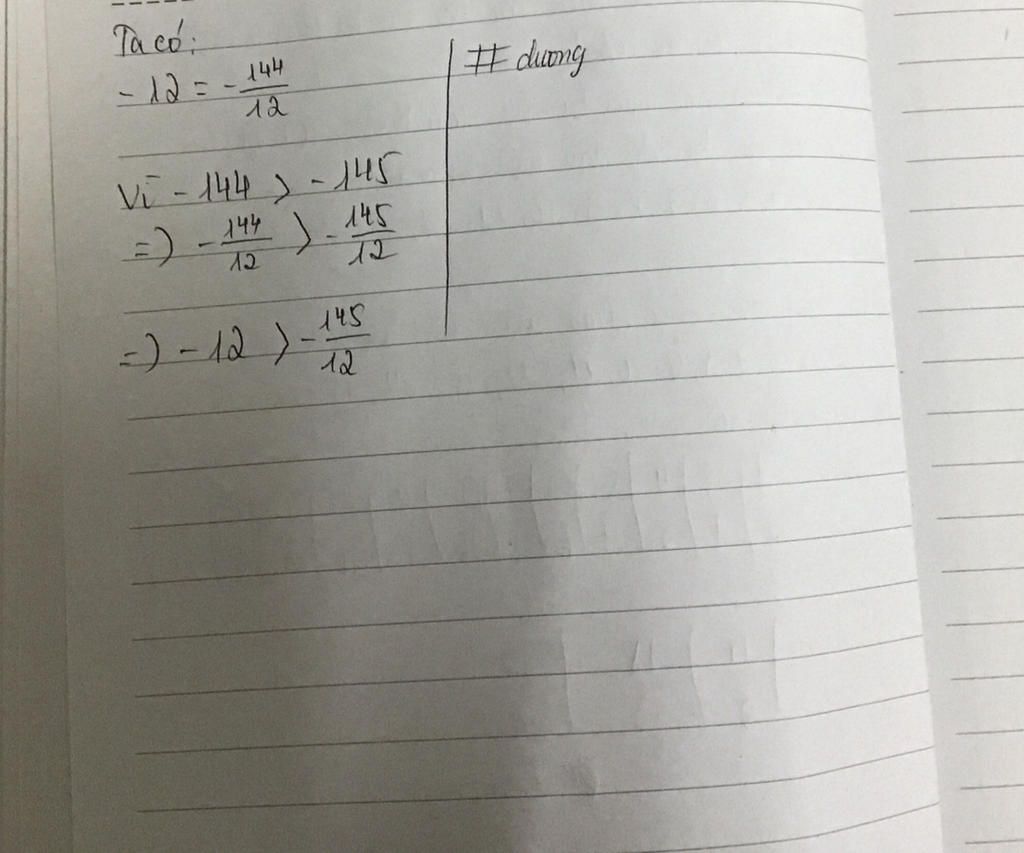 Ta có:
- 12 = - 144/12
Vì - 144 > - 145
=> - 144/12 > - 145/12
=> - 12 > - 145/12
# duong